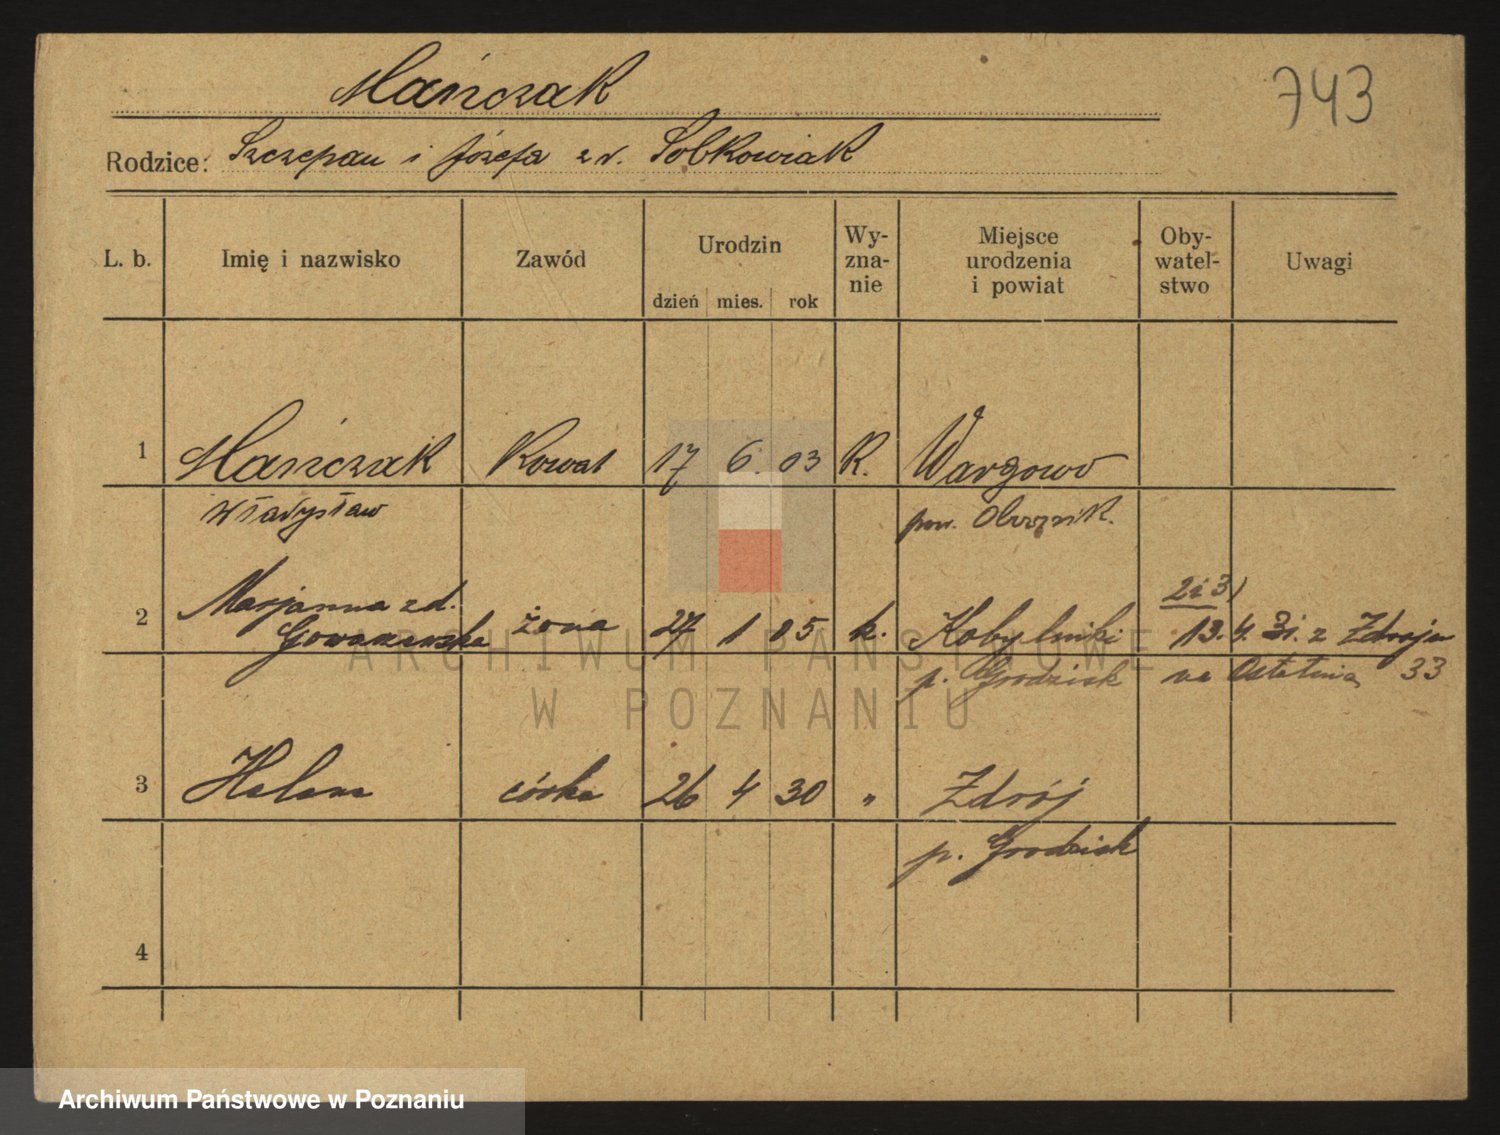 Mańczak
743
Rodzice: Szczepan i Józefa z d. Sobkowiak
L. b. Imię i nazwisko Zawód Urodzin dzień mies. rok Wy-zna-nie Miejsce urodzenia i powiat Oby-watel-stwo Uwagi
1 Mańczak Kowal 17 6. 03 R. Wargowo
Władysław pow. Obornik.
2 Marjanna z d. żona 27 1 05 k. Kobylniki 2 i 3)
13. 4. 31. z Zdroju
p. Grodzisk na 33
3 Helena córka 26 4 30 " Zdrój
p. Grodzisk
4
ARCHIWUM PAŃSTWOWE
W POZNANIU
Archiwum Państwowe w Poznaniu